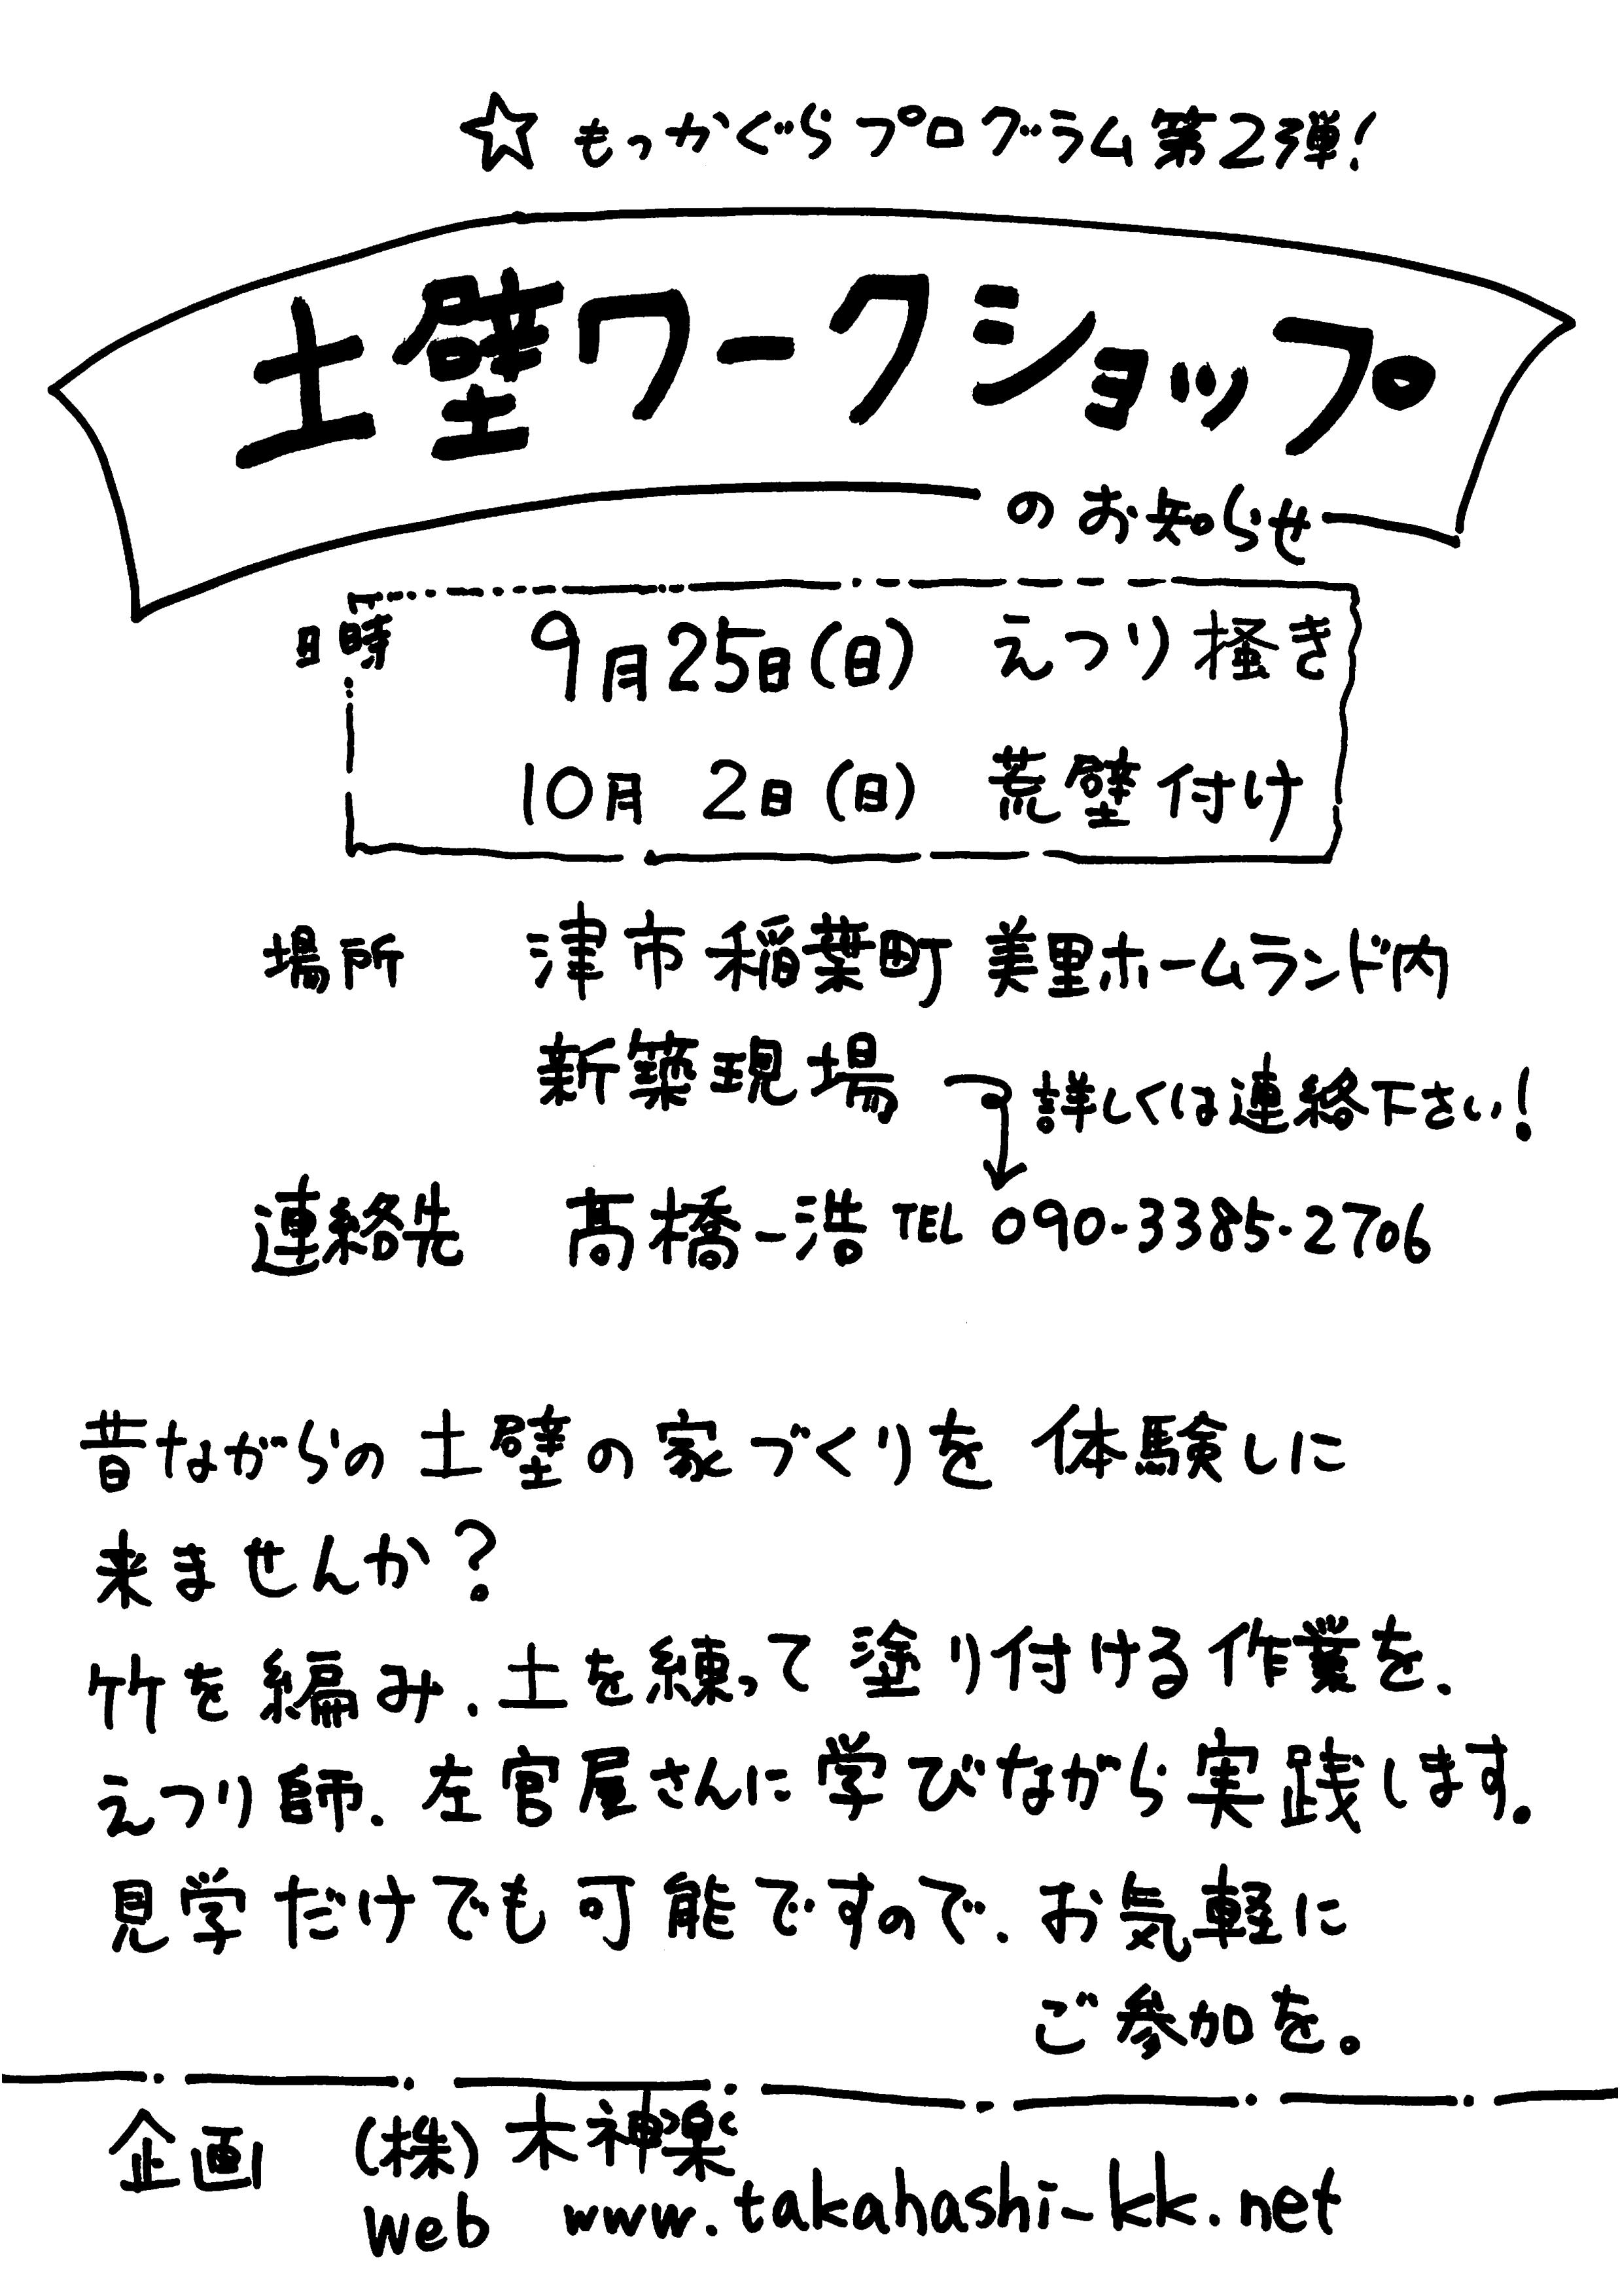 ☆ もっかぐらプログラム第2弾!
土壁ワークショップ
のお知らせ
日時 9月25日(日) えつり掻き
10月 2日(日) 荒壁付け
場所 津市稲葉町 美里ホームランド内
新築現場 詳しくは連絡下さい!
連絡先 高橋一浩 TEL 090-3385-2706
昔ながらの土壁の家づくりを体験しに
来ませんか?
竹を編み、土を練って塗り付ける作業を、
えつり師、左官屋さんに学びながら実践します。
見学だけでも可能ですので、お気軽に
ご参加を。
企画 (株)木神楽
web www.takahashi-kk.net